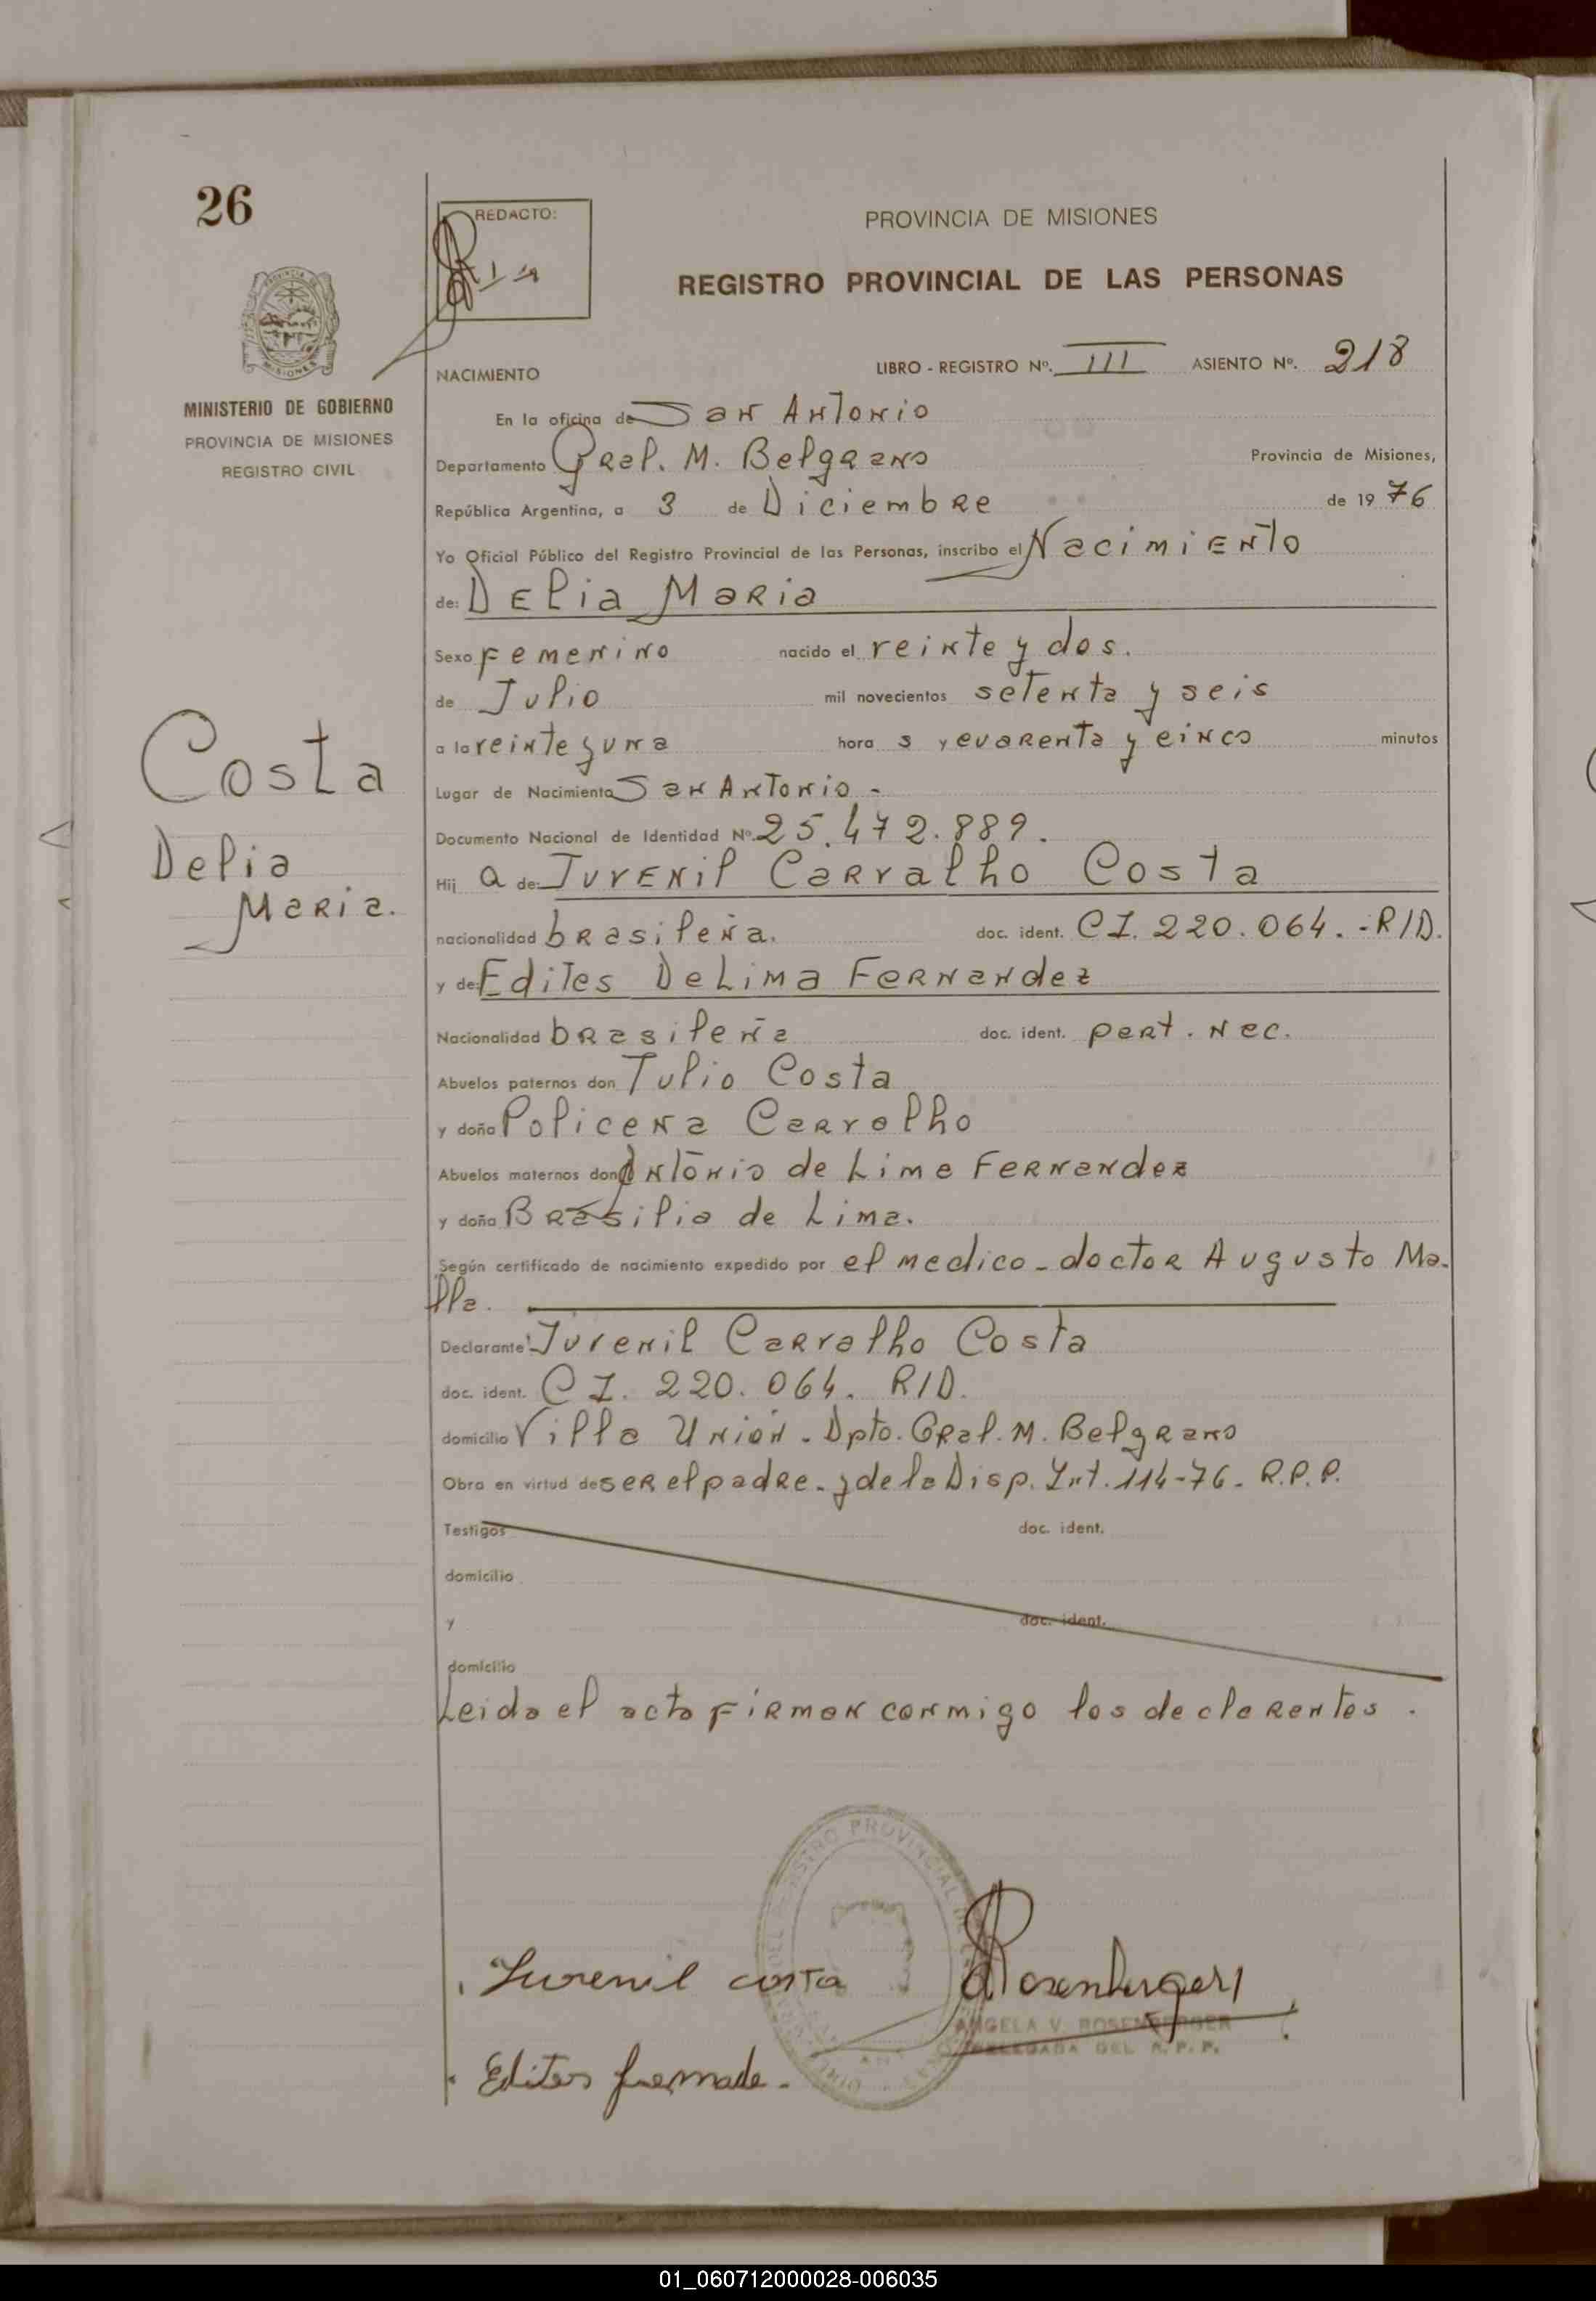 26
REDACTO:
PROVINCIA DE MISIONES
REGISTRO PROVINCIAL DE LAS PERSONAS
MINISTERIO DE GOBIERNO
PROVINCIA DE MISIONES
REGISTRO CIVIL
LIBRO - REGISTRO Nº. III ASIENTO Nº. 218
NACIMIENTO
En la oficina de San Antonio
Departamento Gral. M. Belgrano Provincia de Misiones,
República Argentina, a 3 de Diciembre de 19 76
Yo Oficial Público del Registro Provincial de las Personas, inscribo el Nacimiento
de: Delia Maria
Sexo Femenino nacido el veinte y dos.
de Julio mil novecientos setenta y seis
a la veinte y una hora s y cuarenta y cinco minutos
Costa
Delia
Maria.
Lugar de Nacimiento San Antonio -
Documento Nacional de Identidad Nº. 25.472.889.
Hij a de: Juvenil Carvalho Costa
nacionalidad brasileña. doc. ident. CI. 220.064. - R/D.
y de: Edites DeLima Fernandez
Nacionalidad brasileña doc. ident. pert. nec.
Abuelos paternos don Tulio Costa
y doña Policena Carvalho
Abuelos maternos don Antonio de Lima Fernandez
y doña Brasilia de Lima.
Según certificado de nacimiento expedido por el medico - doctor Augusto Ma-
lla.
Declarante: Juvenil Carvalho Costa
doc. ident. CI. 220.064. R/D.
domicilio Villa Unión - Dpto. Gral. M. Belgrano
Obra en virtud de ser el padre - y de la Disp. Int. 114-76 - R.P.P.
Testigos doc. ident.
domicilio
y doc. ident.
domicilio
Leida el acta firman conmigo los declarantes.
Juvenil costa
Rosenberger
ANGELA V. ROSENBERGER
DELEGADA DEL R. P. P.
Edites
01_060712000028-006035